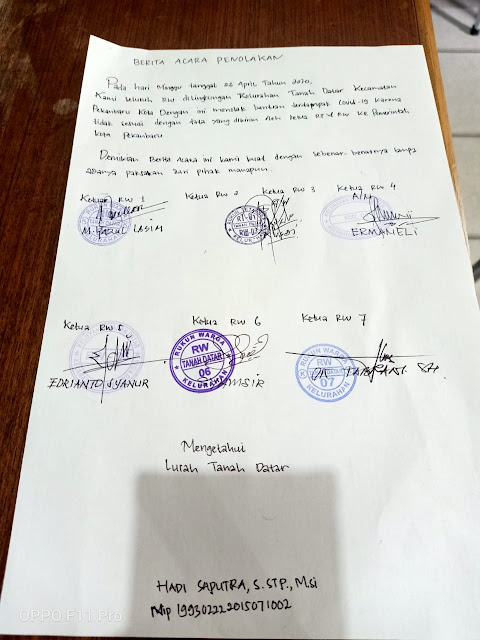 BERITA ACARA PENOLAKAN
Pada hari Minggu tanggal 26 April Tahun 2020,
Kami seluruh RW dilingkungan Kelurahan Tanah Datar Kecamatan
Pekanbaru Kota Dengan ini menolak bantuan terdampak Covid-19 karena
tidak sesuai dengan data yang dikirim oleh Ketua RT & RW Ke Pemerintah
Kota Pekanbaru
Demikian Berita Acara ini kami buat dengan sebenar-benarnya tanpa
adanya paksaan dari pihak manapun.
Ketua RW 1 Ketua RW 2 Ketua RW 3 Ketua RW 4
A/N
RW-03
KELURAHAN
ERMANELI
Ketua RW 5 Ketua RW 6 Ketua RW 7
RUKUN WARGA
RW
TANAH DATAR
06
KELURAHAN
RUKUN WARGA
RW
TANAH DATAR
07
KELURAHAN
EDRIANTO SYANUR
SH
Mengetahui
Lurah Tanah Datar
HADI SAPUTRA, S.STP., M.Si
Nip 199302222015071002
OPPO F11 Pro